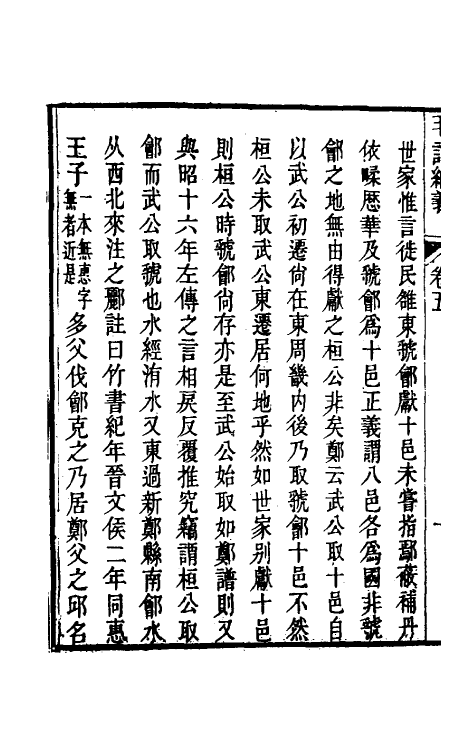 毛詩紬義
卷五
一
世家惟言徙民雒東虢鄶獻十邑未嘗指鄢蔽補丹
依㽥歷華及虢鄶爲十邑正義謂八邑各爲國非虢
鄶之地無由得獻之桓公非矣鄭云武公取十邑自
以武公初遷尙在東周畿内後乃取虢鄶十邑不然
桓公未取武公東遷居何地乎然如世家别獻十邑
則桓公時虢鄶尙存亦是至武公始取如鄭譜則又
與昭十六年左傳之言相戾反覆推究竊謂桓公取
鄶而武公取虢也水經洧水又東過新鄭縣南鄶水
从西北來注之酈註曰竹書紀年晉文侯二年同惠
王子一本無惠字無者近是多父伐鄶克之乃居鄭父之邱名